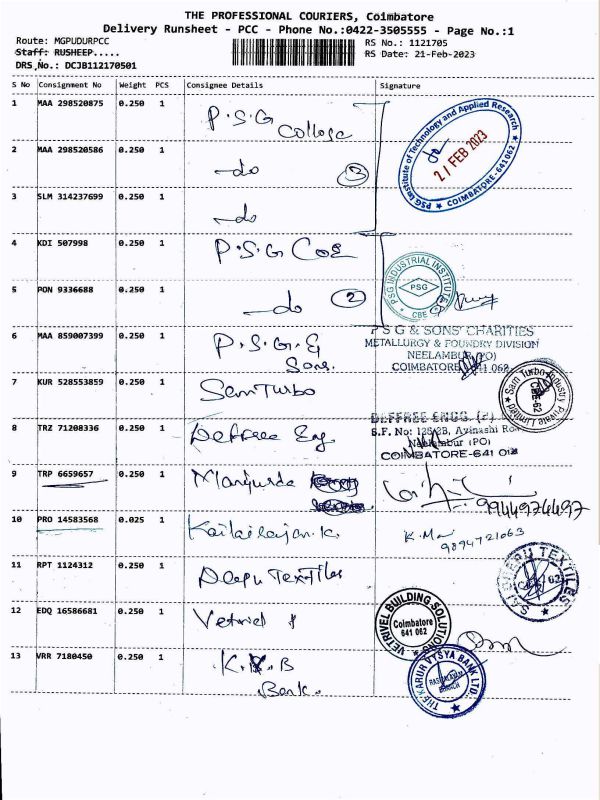 THE PROFESSIONAL COURIERS, Coimbatore
Delivery Runsheet - PCC - Phone No.:0422-3505555 - Page No.:1
Route: MGPUDURPCC
RS No.: 1121705
Staff: RUSHEEP.....
RS Date: 21-Feb-2023
DRS No.: DCJB112170501
S No Consignment No Weight PCS Consignee Details Signature
1 MAA 298520875 0.250 1 P.S.G College
2 MAA 298520586 0.250 1 —do 3
3 SLM 314237699 0.250 1 —do
PSG Institute of Technology and Applied Research
21 FEB 2023
★ COIMBATORE-641 062 ★
4 KDI 507998 0.250 1 P.S.G COE
5 PON 9336688 0.250 1 —do 2
PSG INDUSTRIAL INSTITUTE
PSG
CBE
6 MAA 859007399 0.250 1 P.S.G. & Sons.
P S G & SONS' CHARITIES
METALLURGY & FOUNDRY DIVISION
NEELAMBUR (PO)
COIMBATORE 641 062
7 KUR 528553859 0.250 1 Sam Turbo
Sam Turbo Industry Private Limited
CBE-62
8 TRZ 71208336 0.250 1 Deffree Eng.
DEFFREE ENGG. (P)
S.F. No: 125/2B, Avinashi Road
Neelambur (PO)
COIMBATORE-641
9 TRP 6659657 0.250 1
9944974497
10 PRO 14583568 0.025 1
9894721063
11 RPT 1124312 0.250 1 Deepu Textiles
TEXTILES
12 EDQ 16586681 0.250 1 Vetrivel
VETRIVEL BUILDING SOLUTION
Coimbatore
641 062
13 VRR 7180450 0.250 1 K.V.B Bank.
THE KARUR VYSYA BANK LTD.
BRANCH